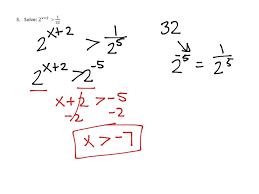 3. Solve: 2^(x+2) > 1/32
2^(x+2) > 1/2^5
32
2^(x+2) > 2^-5
2^-5 = 1/2^5
x+2 > -5
-2 -2
x > -7